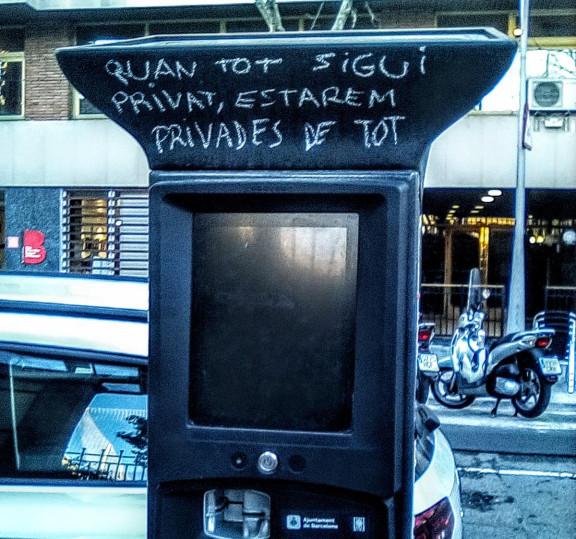 QUAN TOT SIGUI
PRIVAT, ESTAREM
PRIVADES DE TOT
B
Ajuntament
de Barcelona